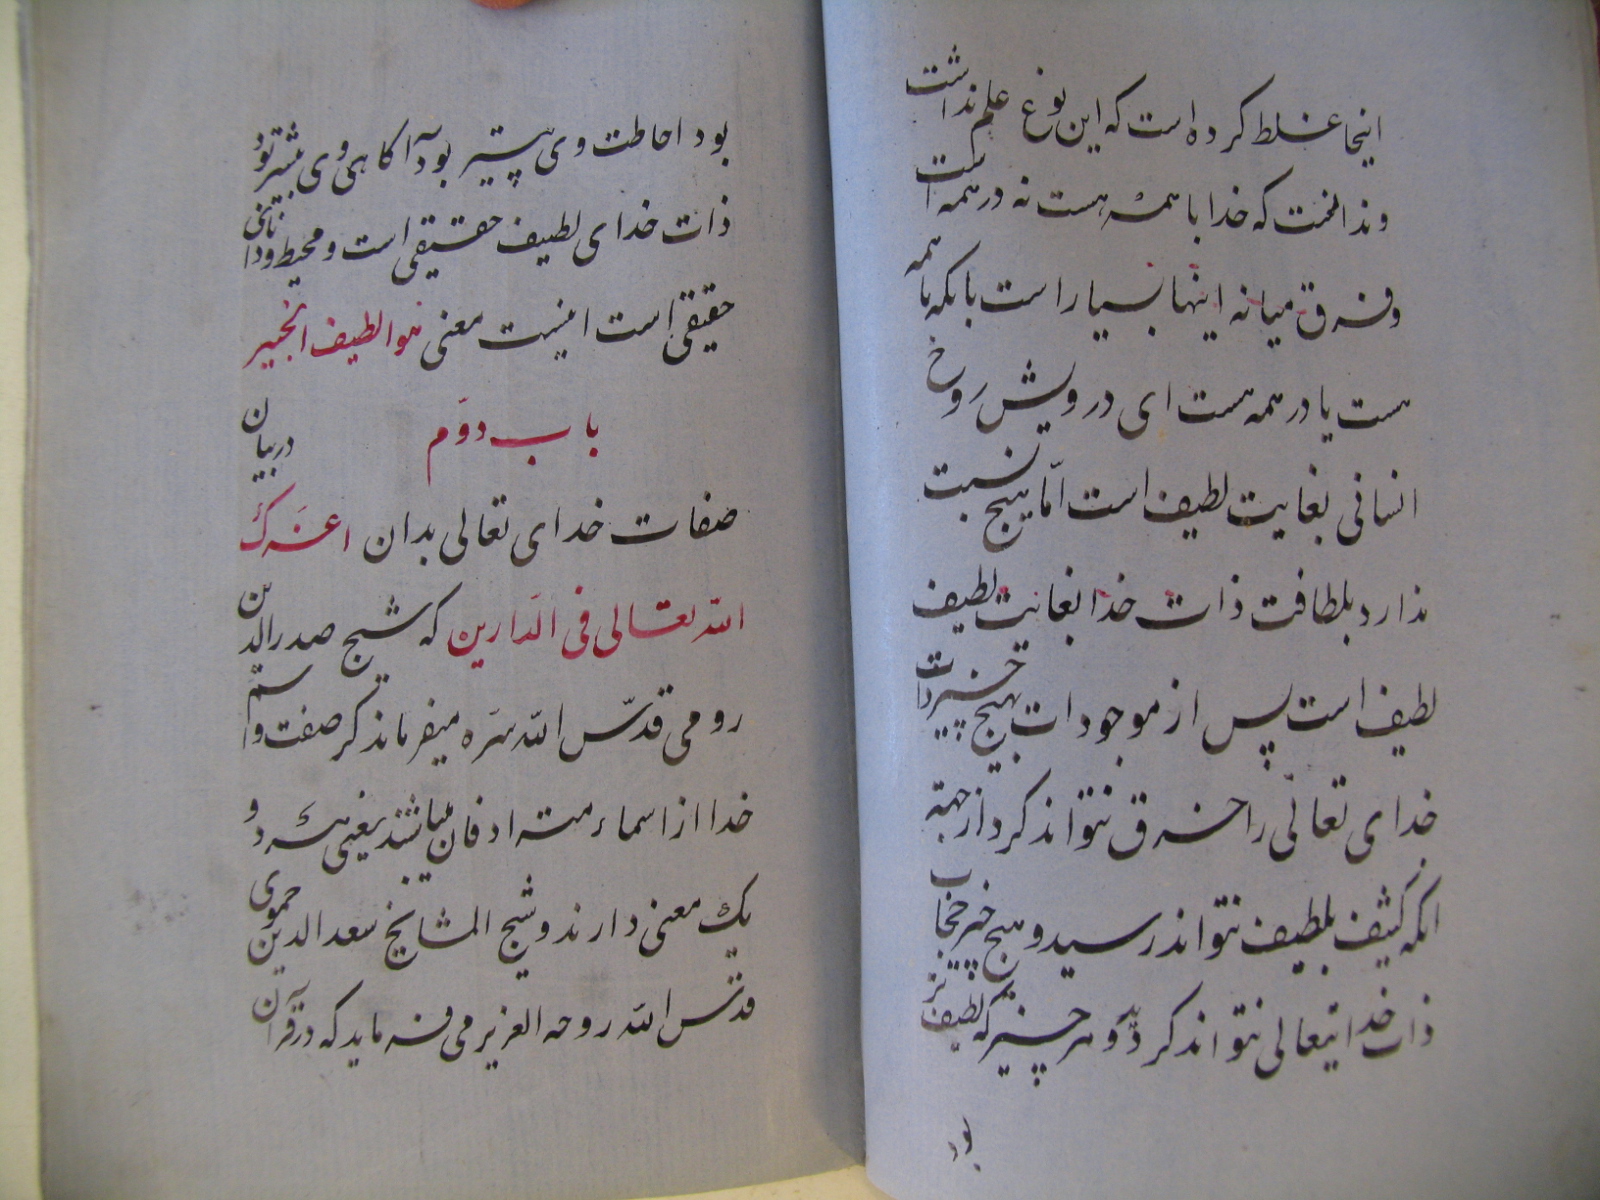 اینجا غلط کرده است که این نوع علم نداشت
و ندانست که خدا با همه هست نه در همه است
و فرق میانه اینها بسیار است با بکه با همه
هست یا در همه هست ای درویش روح
انسانی بغایت لطیف است امّا هیچ نسبت
ندارد بلطافت ذات خدا بغایت لطیف
لطیف است پس از موجودات هیچ چیز ذات
خدای تعالی را خرق نتواند کرد از جهة
انکه کثیف بلطیف نتواند رسید و هیچ چیز حجاب
ذات خدایتعالی نتواند کرد و هر چیز که لطیف تر
بود
بود احاطت وی بیشتر بود آکاهی وی بیشتر بود
ذات خدای لطیف حقیقی است و محیط و دانای
حقیقی است اینست معنی هو الطیف الخبیر
باب دوّم در بیان
صفات خدای تعالی بدان اعزک
الله تعالی فی الدارین که شیخ صدر الدین
رومی قدّس الله سرّه میفرماید که صفت و اسم
خدا از اسماء مترادفان میباشند یعنی هر دو
یک معنی دارند و شیخ المشایخ سعد الدین حموی
قدس الله روحه العزیز می فرماید که در قرآن